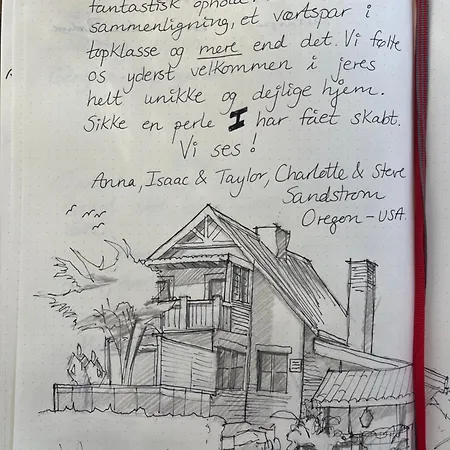 fantastisk ophold
sammenligning, et værtspar i
topklasse og mere end det. Vi følte
os yderst velkommen i jeres
helt unikke og dejlige hjem.
Sikke en perle I har fået skabt.
Vi ses!
Anna, Isaac & Taylor, Charlotte & Steve
Sandstrom
Oregon - USA.